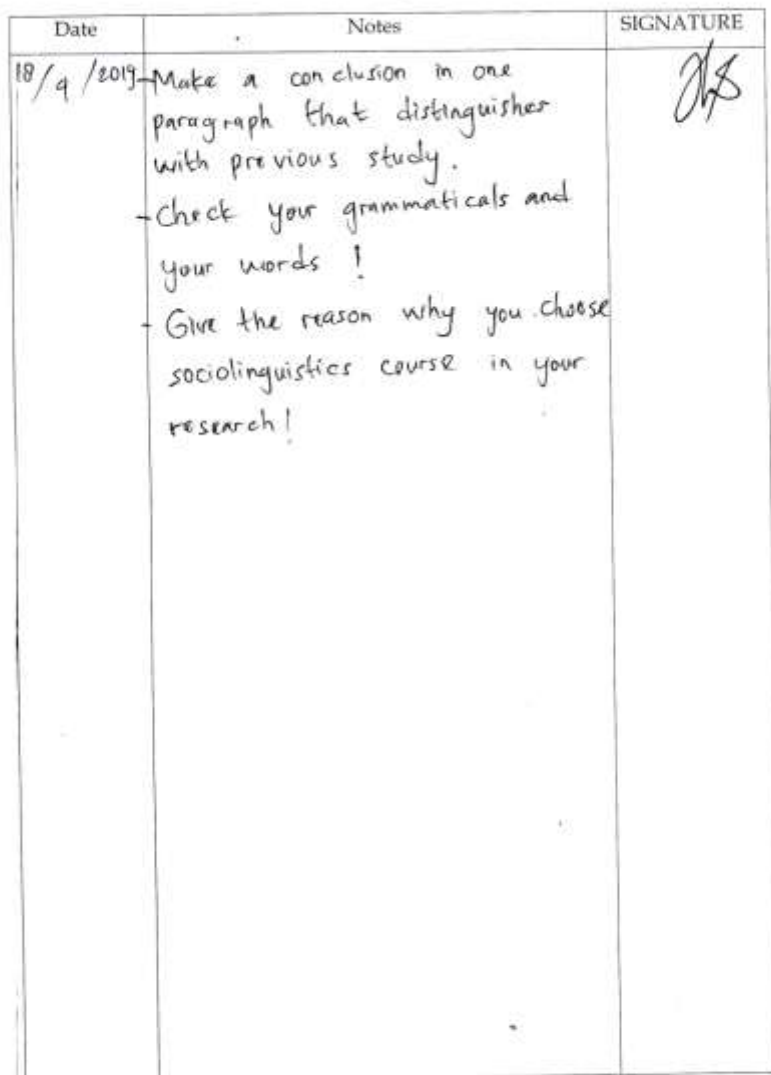 Date Notes SIGNATURE
18/9/2019 - Make a conclusion in one
paragraph that distinguishes
with previous study.
- Check your grammaticals and
your words !
- Give the reason why you choose
sociolinguistics course in your
research!